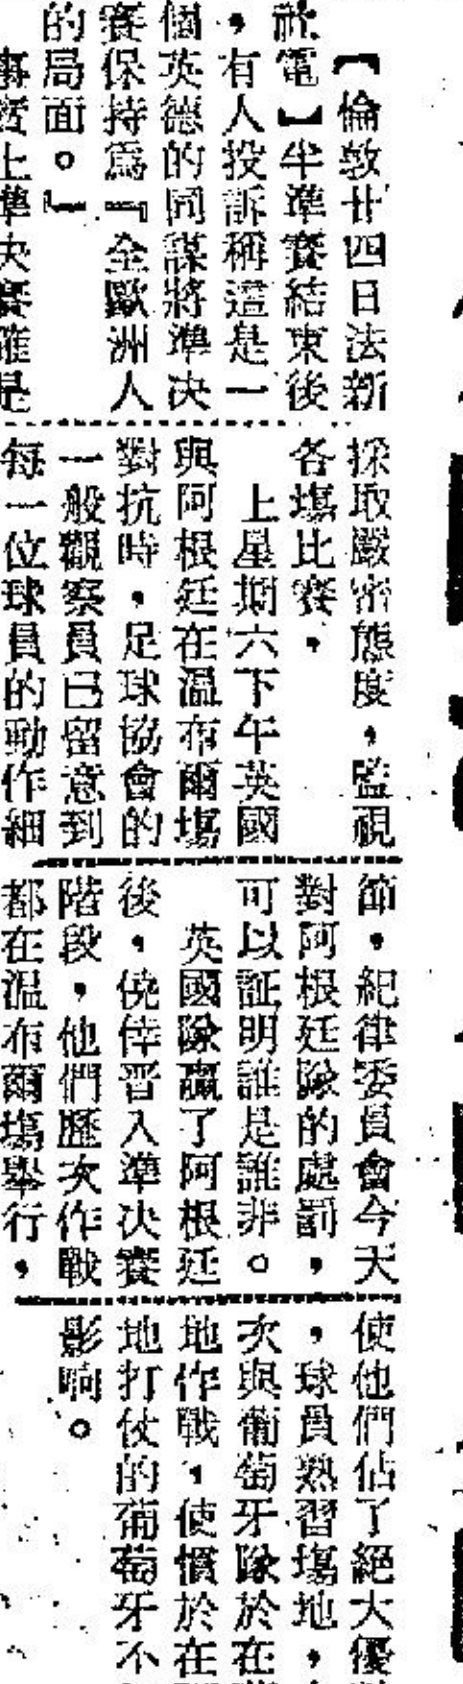 【倫敦廿四日法新
社電】半準賽結束後
，有人投訴稱這是一
個英德的同謀將準决
賽保持為『全歐洲人
的局面。』
事實上準决賽確是
採取嚴密態度，監視
各塲比賽，
上星期六下午英國
與阿根廷在溫布爾塲
對抗時，足球協會的
一般觀察員已留意到
每一位球員的動作細
節，紀律委員會今天
對阿根廷隊的處罰，
可以証明誰是誰非。
英國隊贏了阿根廷
後，僥倖晋入準决賽
階段，他們歷次作戰
都在温布爾塲舉行，
使他們佔了絕大優
，球員熟習塲地，
次與葡萄牙隊於在
地作戰，使慣於在
地打仗的葡萄牙不
影响。